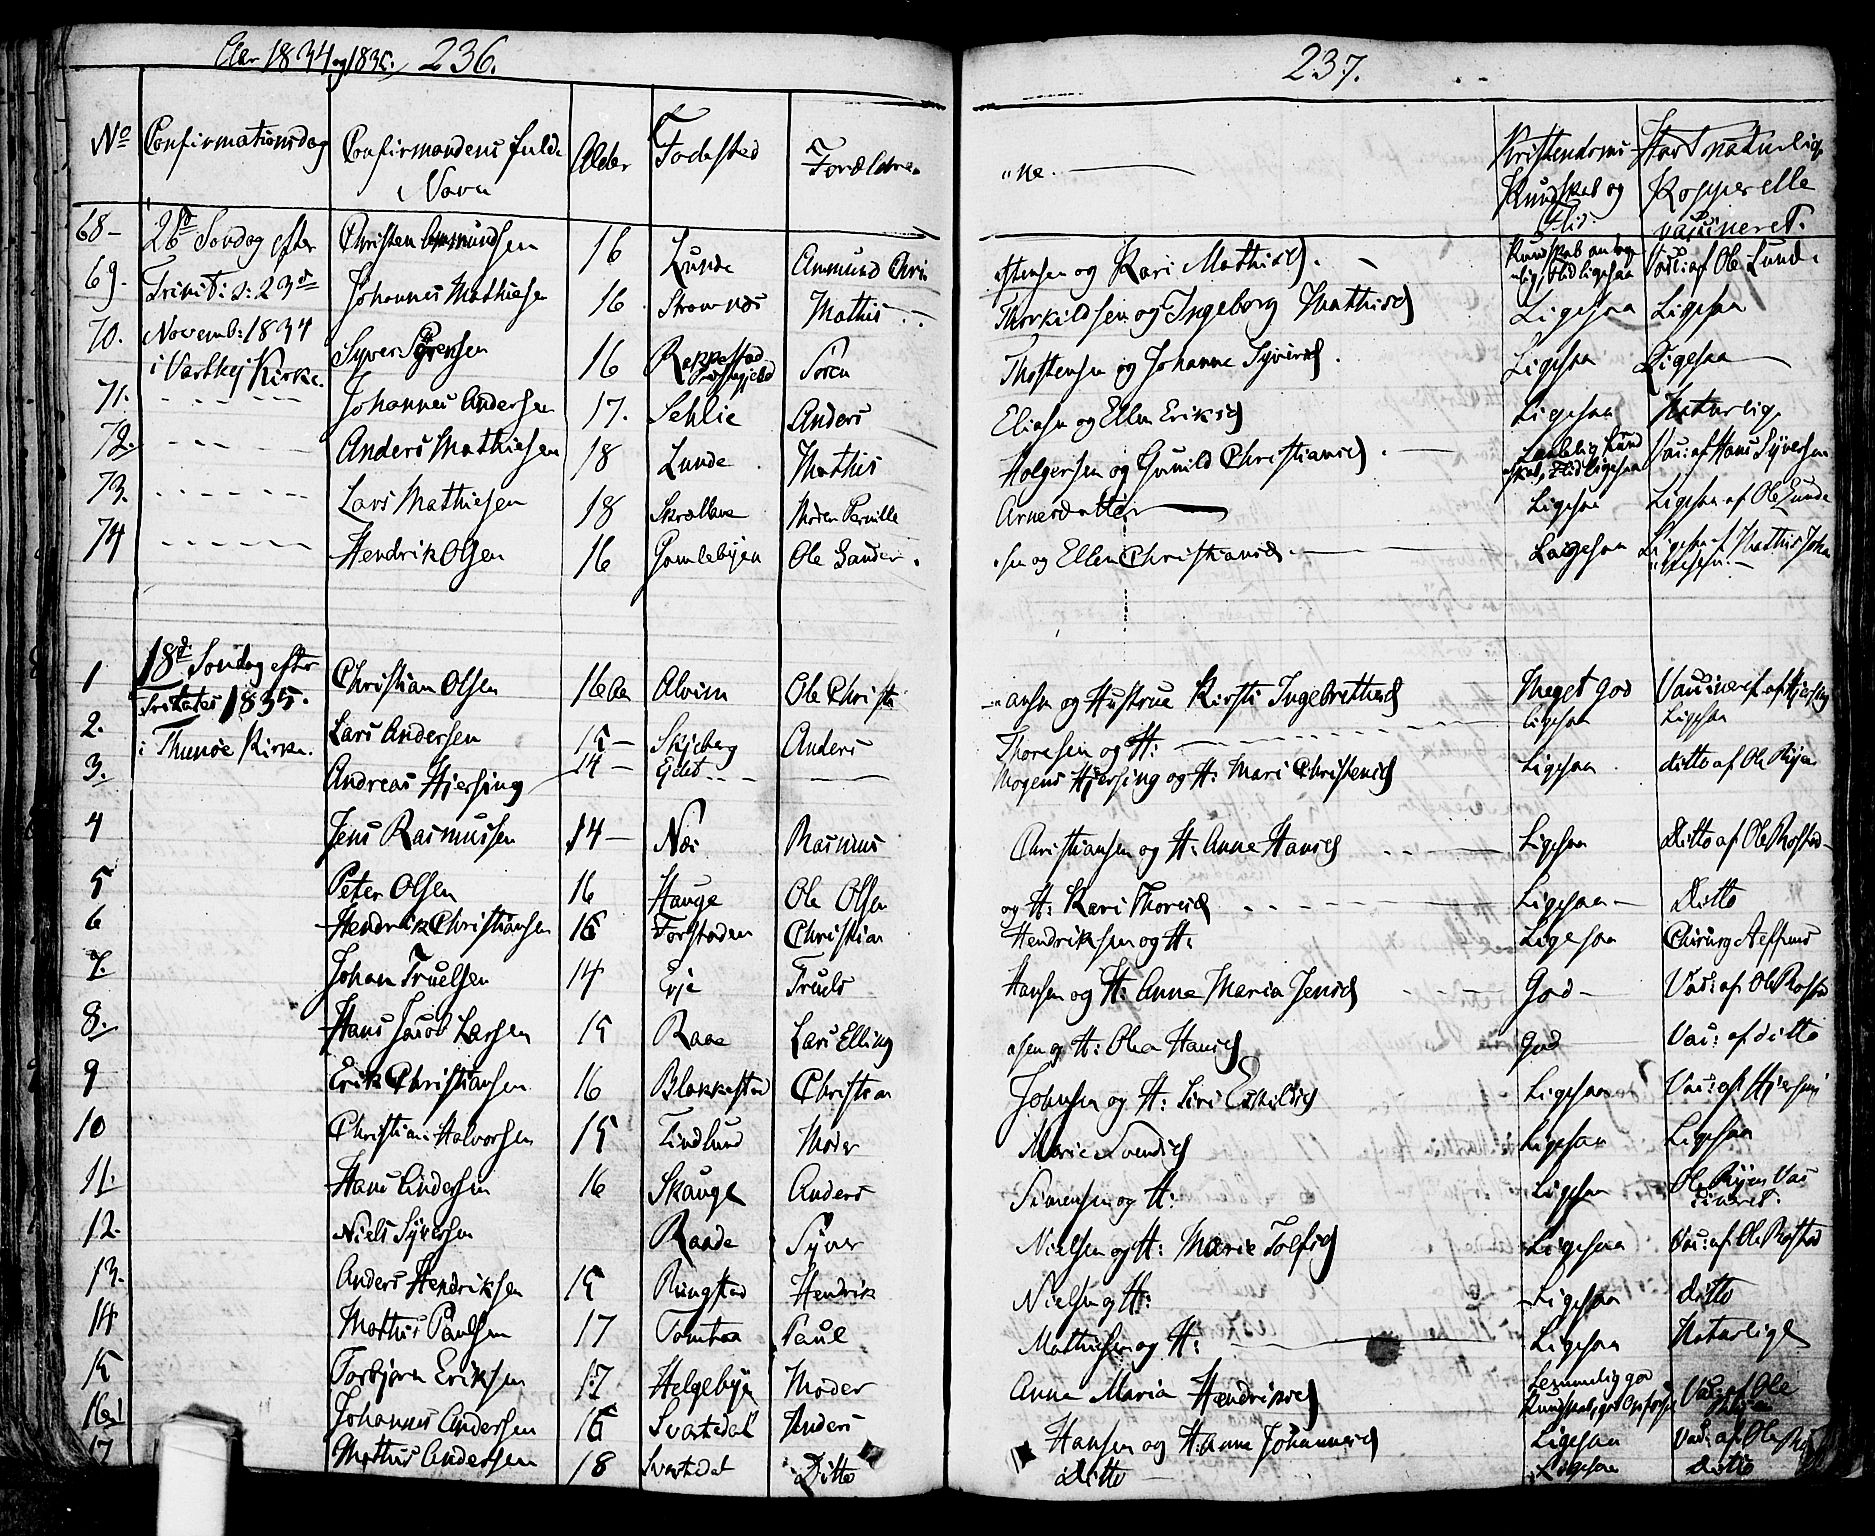 Aar 1834 og 1835. 236.
237.
No Confirmationsdag Confirmandens fulde Navn Alder Fødested Forældre-
"ne. Kristendoms Kundskab og Flid. Havt naturlige Kopper elle vaccineret.
68- 26de Søndag efter Christen Ammundsen 16 Lunde Ammund Chri
stensen og Kari Mathisd. Kundskab antagelig, Flid ligesaa Vacc: af Ole Lunde
69. Trinit: d: 23de Johannes Mathiesen 16 Mathis
Thorkildsen og Ingeborg Mathisd Ligesaa Ligesaa
70. Novemb: 1834 Syver Sørensen 16 Rakkestad Præstegjeld Sören
Thostensen og Johanne Syversd. Ligesaa Ligesaa
i Varteig Kirke.
71. Johannes Andersen 17. Sehlie Anders
Eliesen og Ellen Eriksd Ligesaa Naturlige
72. Anders Mathiesen 18 Lunde Mathis
Holgersen og Gunild Christiansd. Kundskab, Flid ligesaa Vac: af Hans Syversen
73. Lars Mathiesen 18 Moder Pernille
Arnesdatter Ligesaa Ligesaa af Ole Lunde
74 Hendrik Olsen 16 Gamlebyen Ole Gunder
sen og Ellen Christiansd. Ligesaa Ligesaa af Mathis Joha
nnesen.
1 18de Søndag efter Christian Olsen 16 Aar Alvim Ole Christi
-ansen og Hustrue Kirsti Ingebretsd Meget God Vaccineret af Hjersing
Tritates 1835.
2. Lars Andersen 15- Skjeberg Anders
Thoresen og H: ligesaa Ligesaa
i Thunöe Kirke.
3. Andreas Hjersing 14- Eidet
Mogens Hjersing og H: Mari Christensd Ligesaa ditto af Ole Ryen
4 Jens Rasmussen 14- Næs Rasmus
Christiansen og H: Anne Hansd Ligesaa Ditto af Ole Rostad
5 Peter Olsen 16 Hauge Ole Olsen
og H: Kari Thoresd Ligesaa- Ditto
6 Hendrik Christiansen 15 Forstaden Christian
Hendriksen og H: Ligesaa Chirurg
7. Johan Truelsen 14 Evje Truels
Hansen og H: Anne Maria Jensd God- Vac: af Ole Rostad
8. Hans Jacob Larsen 15 Raae Lars Elling
sen og H: Olea Hansd God Vac: af ditto
9 Erik Christiansen 16 Blakkestad Christian
Johnsen og H: Siri Eskildsd Ligesaa Vac: af Hjersing
10 Christian Halvorsen 15 Lindlund Moder
Marie Svendsd Ligesaa Ligesaa
11. Hans Andersen 16 Skauge Anders
Simensen og H: Ligesaa Ole Ryen Vac
cineret.
12. Niels Syversen Raade Syver
Nielsen og H: Marie Tolfsd Ligesaa Vac: af Ole Rostad
13. Anders Hendriksen 15 Ringstad Hendrik
Nielsen og H: Ligesaa ditto
14 Mathis Paulsen 17 Tomtaa Paul
Mathisen og H: Ligesaa Naturlige
15 Torbjørn Eriksen 17 Helgebye Moder
Anna Maria Hendriksd Temmelig god Kundskab, god Vac: af Ole
16 Johannes Andersen 15 Svartedal Anders
Hansen og H: Anne Johannesd Ligesaa Vac: af Ole
17 Mathis Andersen 18 Svartedal Ditto
Ditto Ligesaa ditto